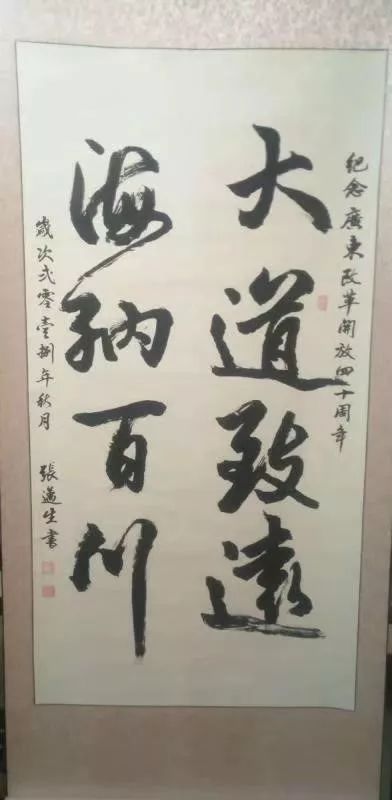 紀念廣東改革開放四十周年
大道致遠
海納百川
歲次弍零壹捌年秋月
張邁生書